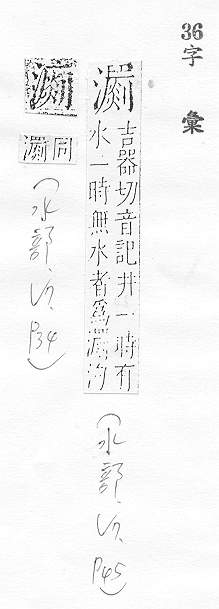 36
字彙
吉器切音記井一時有
水一時無水者爲汋
(水部. P45)
同
(水部. P34)